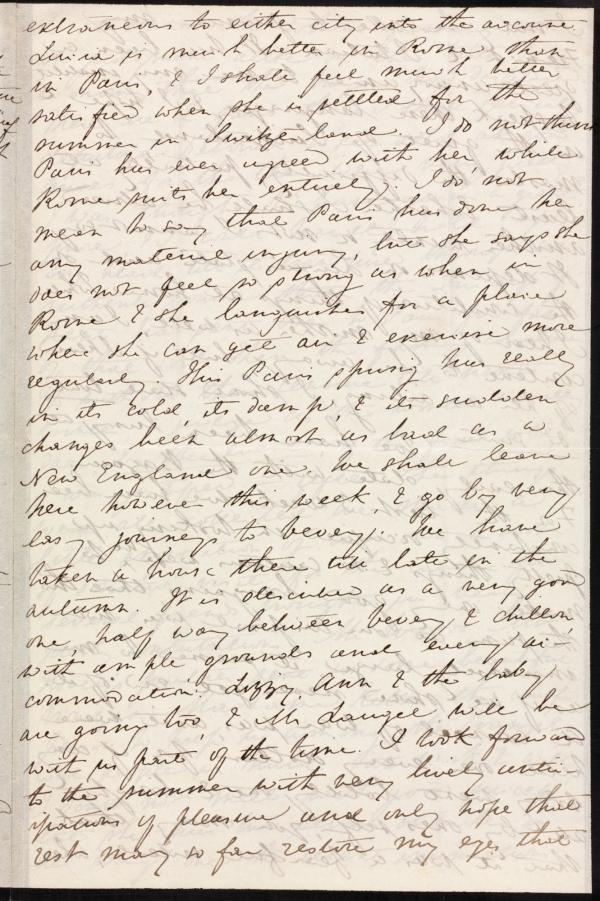 extraneous to either city into the account.
Luisa is much better in Rome than
in Paris, & I shall feel much better
satisfied when she is settled for the
summer in Switzerland. I do not think
Paris has ever agreed with her while
Rome suits her entirely. I do not
mean to say that Paris has done her
any material injury, but she says she
does not feel so strong as when in
Rome & she languishes for a place
where she can get air & exercise more
regularly. This Paris spring has really
in its cold, its damp, & its sudden
changes been almost as bad as a
New England one. We shall leave
here however this week, & go by very
easy journeys to Vevey. We have
taken a house there till late in the
autumn. It is described as a very good
one, half way between Vevey & Chillon,
with ample grounds and every ac-
commodation. Lizzy, Ann & the baby
are going too, & Mr Laugel will be
with us part of the time. I look forward
to the summer with very lively antici-
pations of pleasure and only hope that
rest may so far restore my eyes that